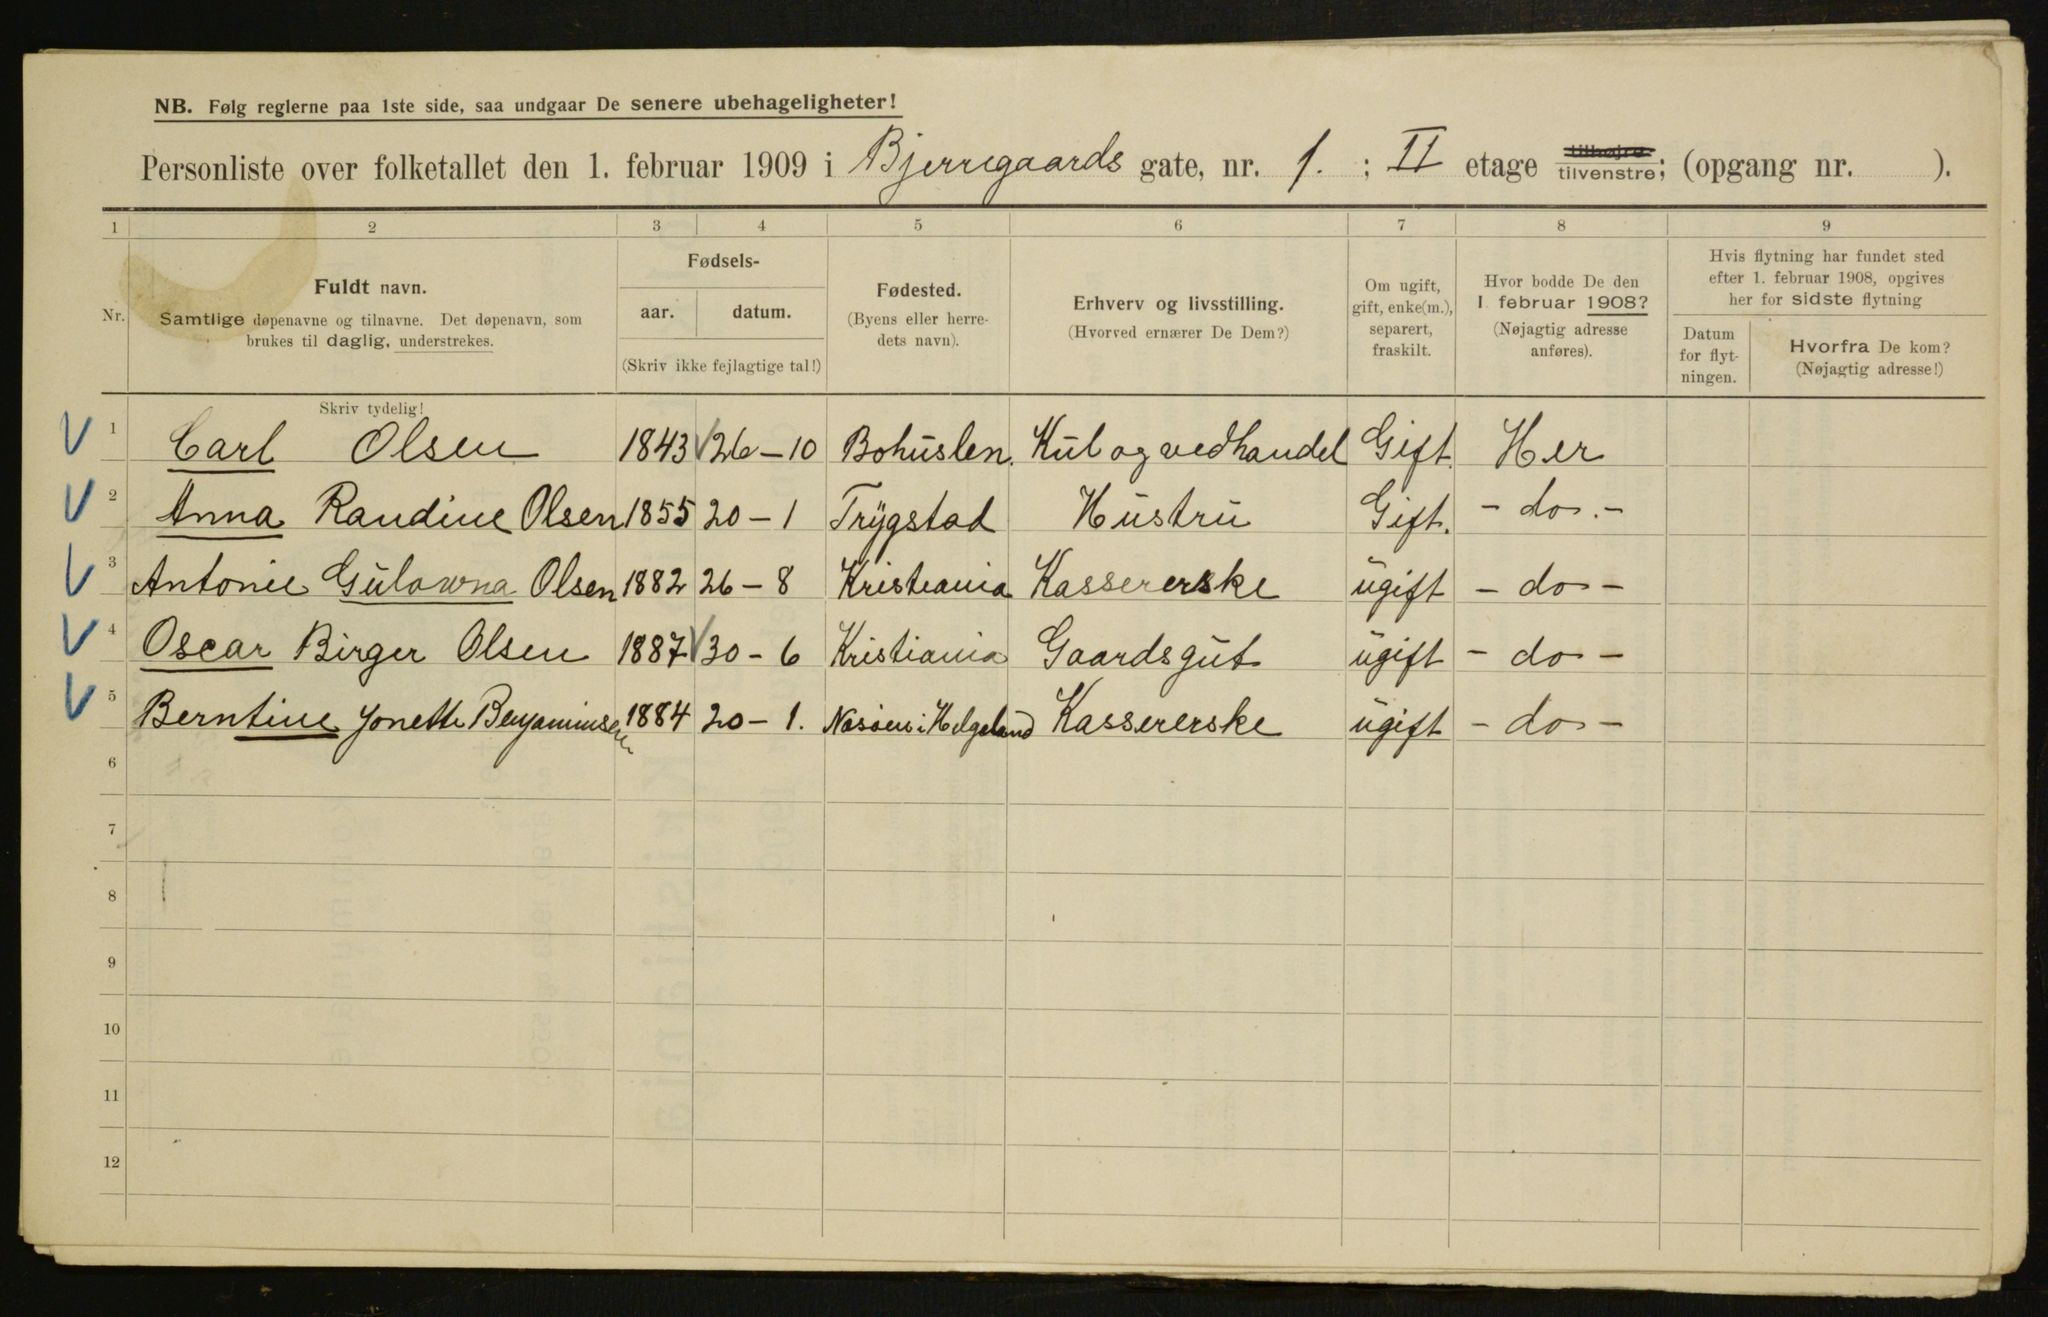 NB. Følg reglerne paa 1ste side, saa undgaar De senere ubehageligheter!
Personliste over folketallet den 1. februar 1909 i Bjerregaards gate, nr. 1. ; II etage tilhøjre tilvenstre; (opgang nr. ).
1 2 3 4 5 6 7 8 9
Nr.
Fuldt navn.
Samtlige døpenavne og tilnavne. Det døpenavn, som
brukes til daglig, understrekes.
Fødsels-
aar. datum.
(Skriv ikke fejlagtige tal!)
Fødested.
(Byens eller herre-
dets navn).
Erhverv og livsstilling.
(Hvorved ernærer De Dem?)
Om ugift,
gift, enke(m.),
separert,
fraskilt.
Hvor bodde De den
1 februar 1908?
(Nøjagtig adresse
anføres).
Hvis flytning har fundet sted
efter 1. februar 1908, opgives
her for sidste flytning
Datum
for flyt-
ningen.
Hvorfra De kom?
(Nøjagtig adresse!)
Skriv tydelig!
1 Carl Olsen 1843 26-10 Bohuslen. Kul og vedhandel Gift. Her
2 Anna Randine Olsen 1855 20-1 Trygstad Hustru Gift. - do. -
3 Antonie Gulowna Olsen 1882 26-8 Kristiania Kassererske ugift - do -
4 Oscar Birger Olsen 1887 30-6 Kristiania Gaardsgut ugift - do -
5 Berntine Jonette Benjaminsen 1884 20-1. i Helgeland Kassererske ugift - do -
6
7
8
9
10
11
12